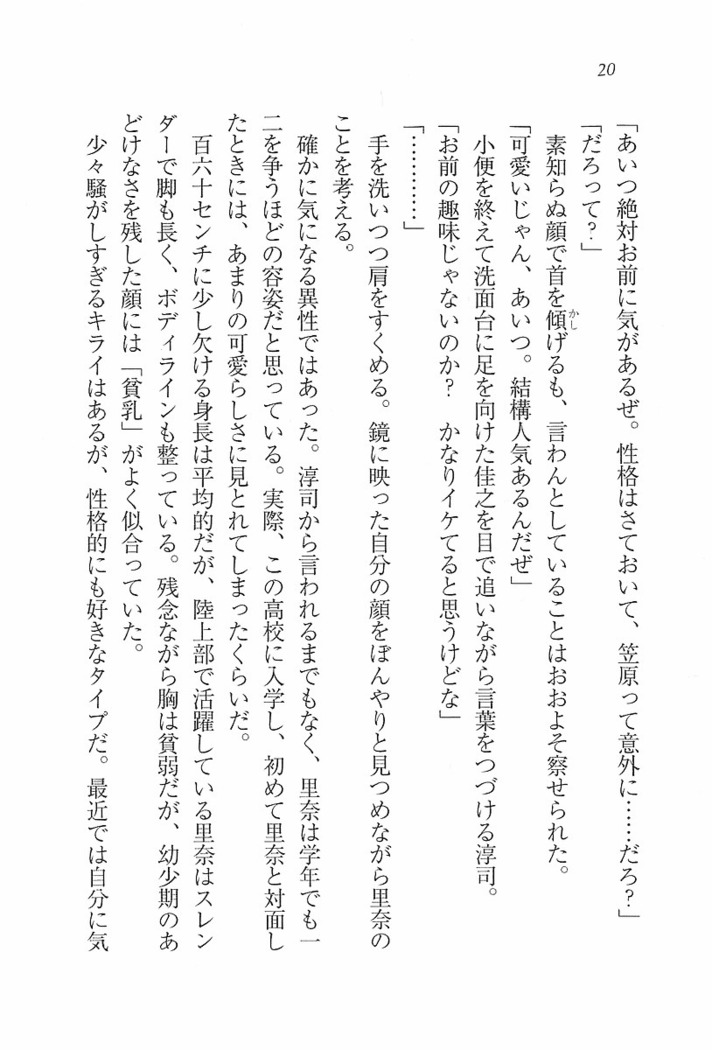 20
「あいつ絶対お前に気があるぜ。性格はさておいて、笠原って意外に……だろ？」
「だろって？」
素知らぬ顔で首を傾げるも、言わんとしていることはおおよそ察せられた。
かし
「可愛いじゃん、あいつ。結構人気あるんだぜ」
小便を終えて洗面台に足を向けた佳之を目で追いながら言葉をつづける淳司。
「お前の趣味じゃないのか？　かなりイケてると思うけどな」
「…………」
手を洗いつつ肩をすくめる。鏡に映った自分の顔をぼんやりと見つめながら里奈の
ことを考える。
確かに気になる異性ではあった。淳司から言われるまでもなく、里奈は学年でも一
二を争うほどの容姿だと思っている。実際、この高校に入学し、初めて里奈と対面し
たときには、あまりの可愛らしさに見とれてしまったくらいだ。
百六十センチに少し欠ける身長は平均的だが、陸上部で活躍している里奈はスレン
ダーで脚も長く、ボディラインも整っている。残念ながら胸は貧弱だが、幼少期のあ
どけなさを残した顔には「貧乳」がよく似合っていた。
少々騒がしすぎるキライはあるが、性格的にも好きなタイプだ。最近では自分に気